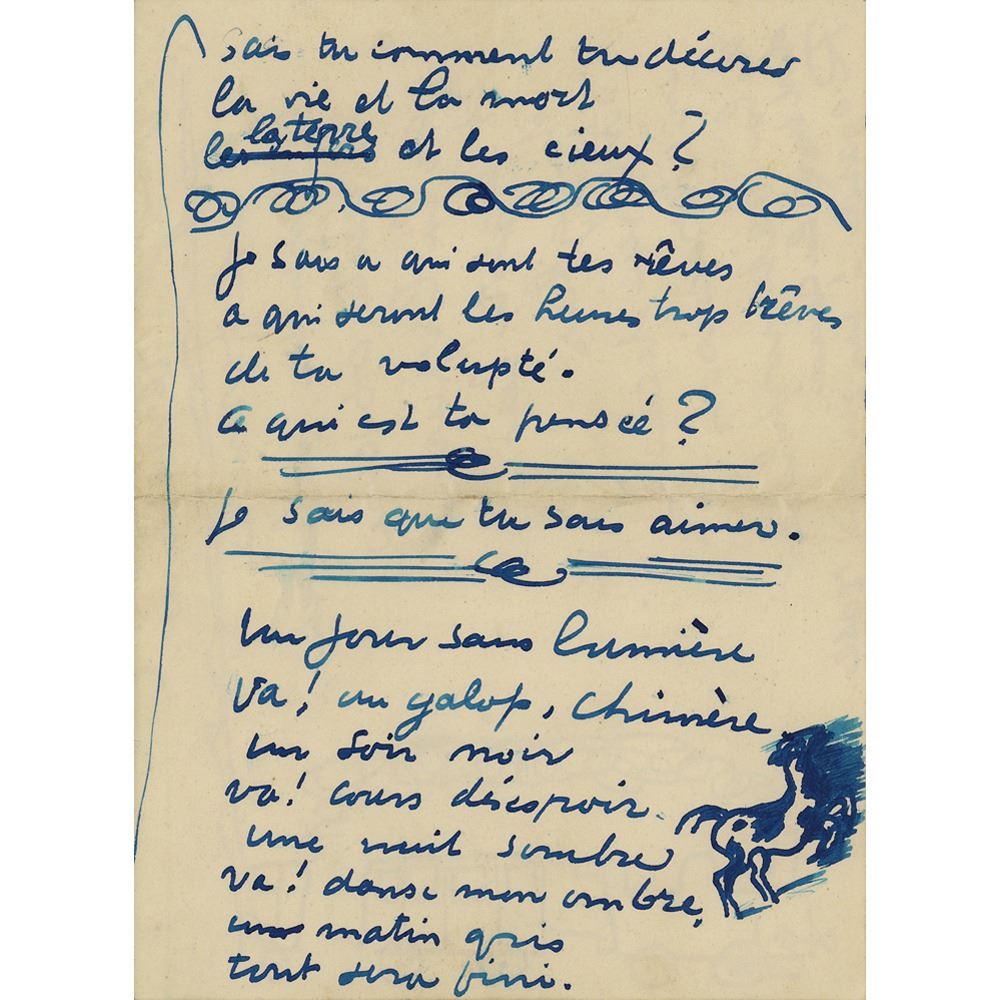 Sais tu comment tu décores
la vie et la mort
la terre
les et les cieux ?
Je sais a qui sont tes rêves
a qui seront les heures trop brêves
de ta volupté.
a qui est ta pensée ?
Je sais que tu sais aimer.
un jour sans lumière
Va ! au galop, chimère
un soir noir
va ! cours désespoir.
une nuit sombre
va ! danse mon ombre,
un matin gris
tout sera fini.